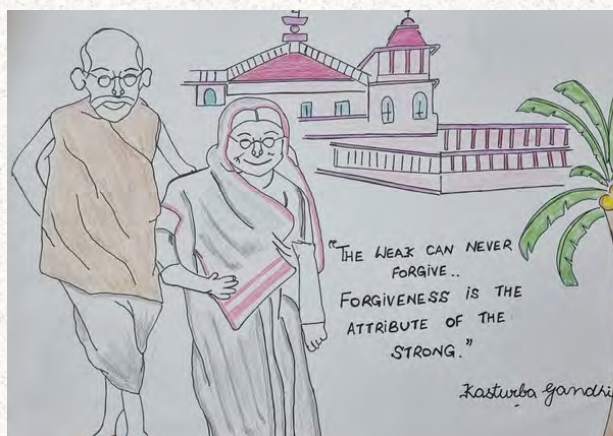 "THE WEAK CAN NEVER
FORGIVE..
FORGIVENESS IS THE
ATTRIBUTE OF THE
STRONG."
Kasturba Gandhi